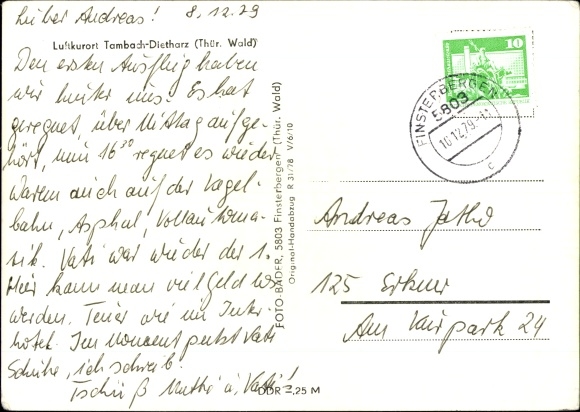 Lieber Andreas! 8.12.79
Luftkurort Tambach-Dietharz (Thür. Wald)
Den ersten Ausflug haben
wir hinter uns. Es hat
geregnet, über Mittag aufge-
hört, nun 16³⁰ regnet es wieder
Waren auch auf der Kegel-
bahn, Asphalt, Vollautoma-
tik. Vati war wieder der 1.
Hier kann man viel Geld los
werden. Teuer wie im Inter-
hotel. Im Moment putzt Vati
Schuhe, ich schreib.
Tschüß Mutti u. Vati!
DDR -,25 M
FOTO-BÄDER, 5803 Finsterbergen (Thür. Wald)
Original-Handabzug R 31/78 V/6/10
10
FINSTERBERGEN
5803
10.12.79
c
Andreas
125 Erkner
Am Kurpark 24